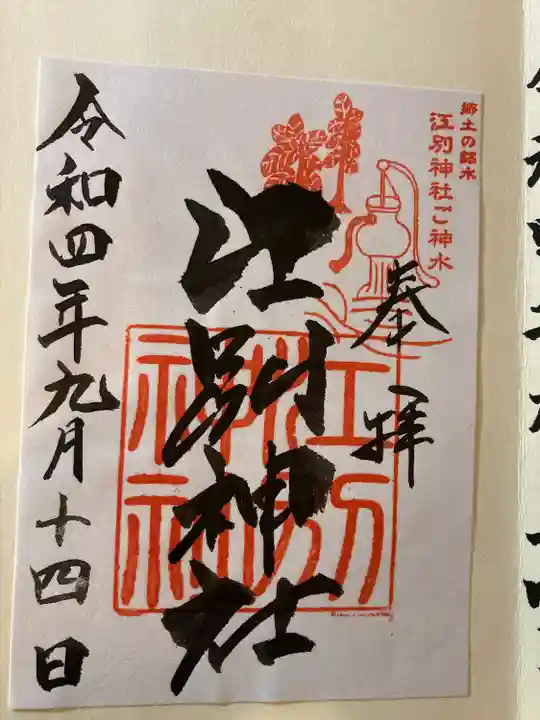 郷土の銘水
江別神社ご神水
奉拝
江別神社
江別
神社
令和四年九月十四日